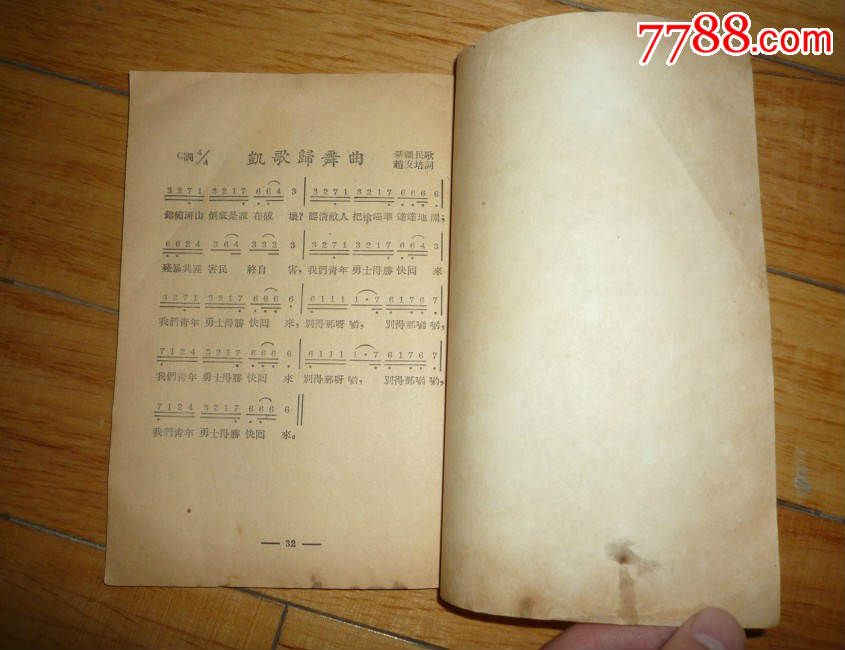 7788.com
C調 4/4 凱歌歸舞曲 新疆民歌
趙友培詞
3271 3217 664 3 3271 3217 666 6
錦繡河山 倒底是誰 在破 壞？認清敵人 把槍
6624 364 332 3 3271 3217 664 3
殘暴共匪 害民 終自 害，我們青年 勇士得勝 快回 來
3271 3217 666 6 6111 1·7 6176 7
我們青年 勇士得勝 快回 來，別得那呀 喲，別得那喲 喲，
7124 3217 666 6 6111 1·7 6176 7
我們青年 勇士得勝 快回 來 別得那呀 喲，別得那喲 喲，
7124 3217 666 6
我們青年 勇士得勝 快回 來。
— 32 —